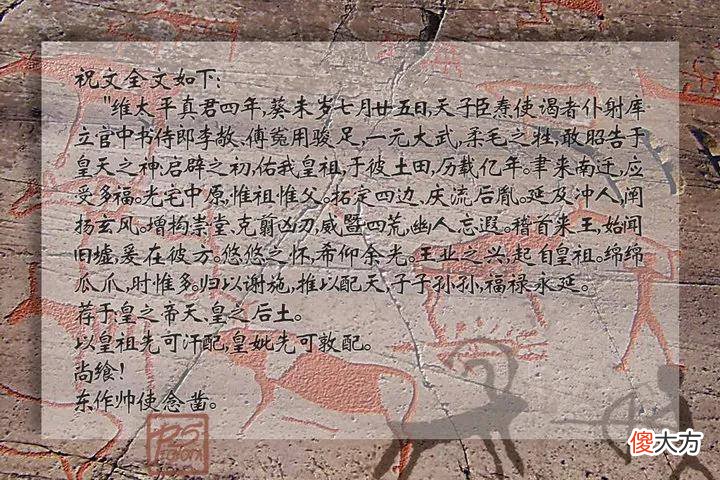 祝文全文如下:
"维太平真君四年,葵未岁七月廿五日,天子臣焘使谒者仆射库
立官中书侍郎李敞、傅㝹用骏足,一元大武,柔毛之牲,敢昭告于
皇天之神:启辟之初,佑我皇祖,于彼土田,历载亿年。聿来南迁,应
受多福。光宅中原,惟祖惟父。拓定四边,庆流后胤。延及冲人,阐
扬玄风。增构崇堂、克翦凶刃,威暨四荒,幽人忘遐。稽首来王,始闻
旧墟,爰在彼方。悠悠之怀,希仰余光。王业之兴,起自皇祖。绵绵
瓜爪,时惟多。归以谢施,推以配天,子子孙孙,福禄永延。
荐于:皇之帝天、皇之后土。
以皇祖先可汗配,皇妣先可敦配。
尚飨!
东作帅使念凿。
傻大方